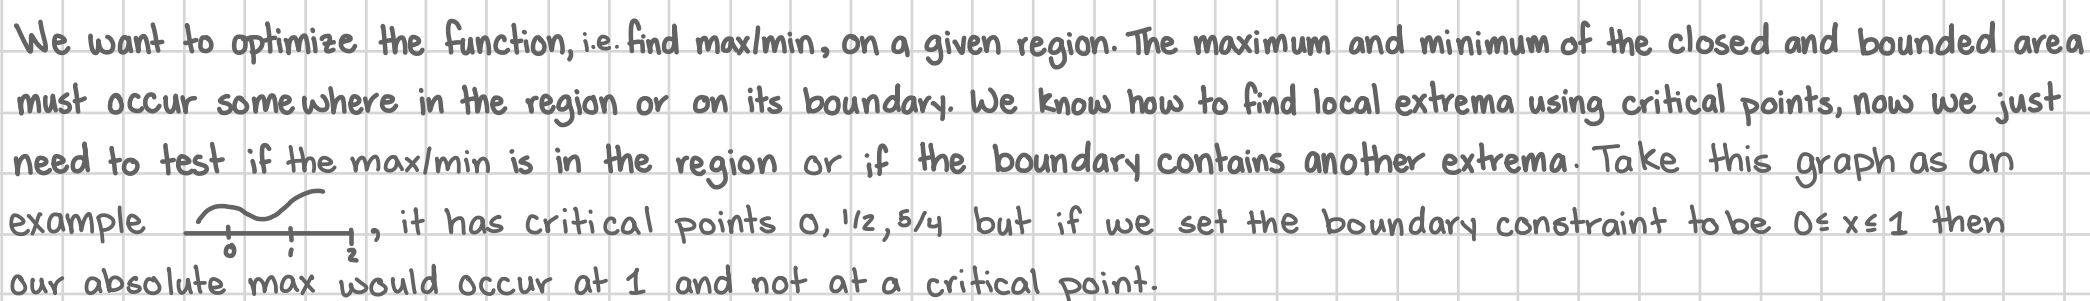 We want to optimize the function, i.e. find max/min, on a given region. The maximum and minimum of the closed and bounded area
must occur somewhere in the region or on its boundary. We know how to find local extrema using critical points, now we just
need to test if the max/min is in the region or if the boundary contains another extrema. Take this graph as an
example 0 1 2, it has critical points 0, 1/2, 5/4 but if we set the boundary constraint to be 0≤ x≤ 1 then
our absolute max would occur at 1 and not at a critical point.